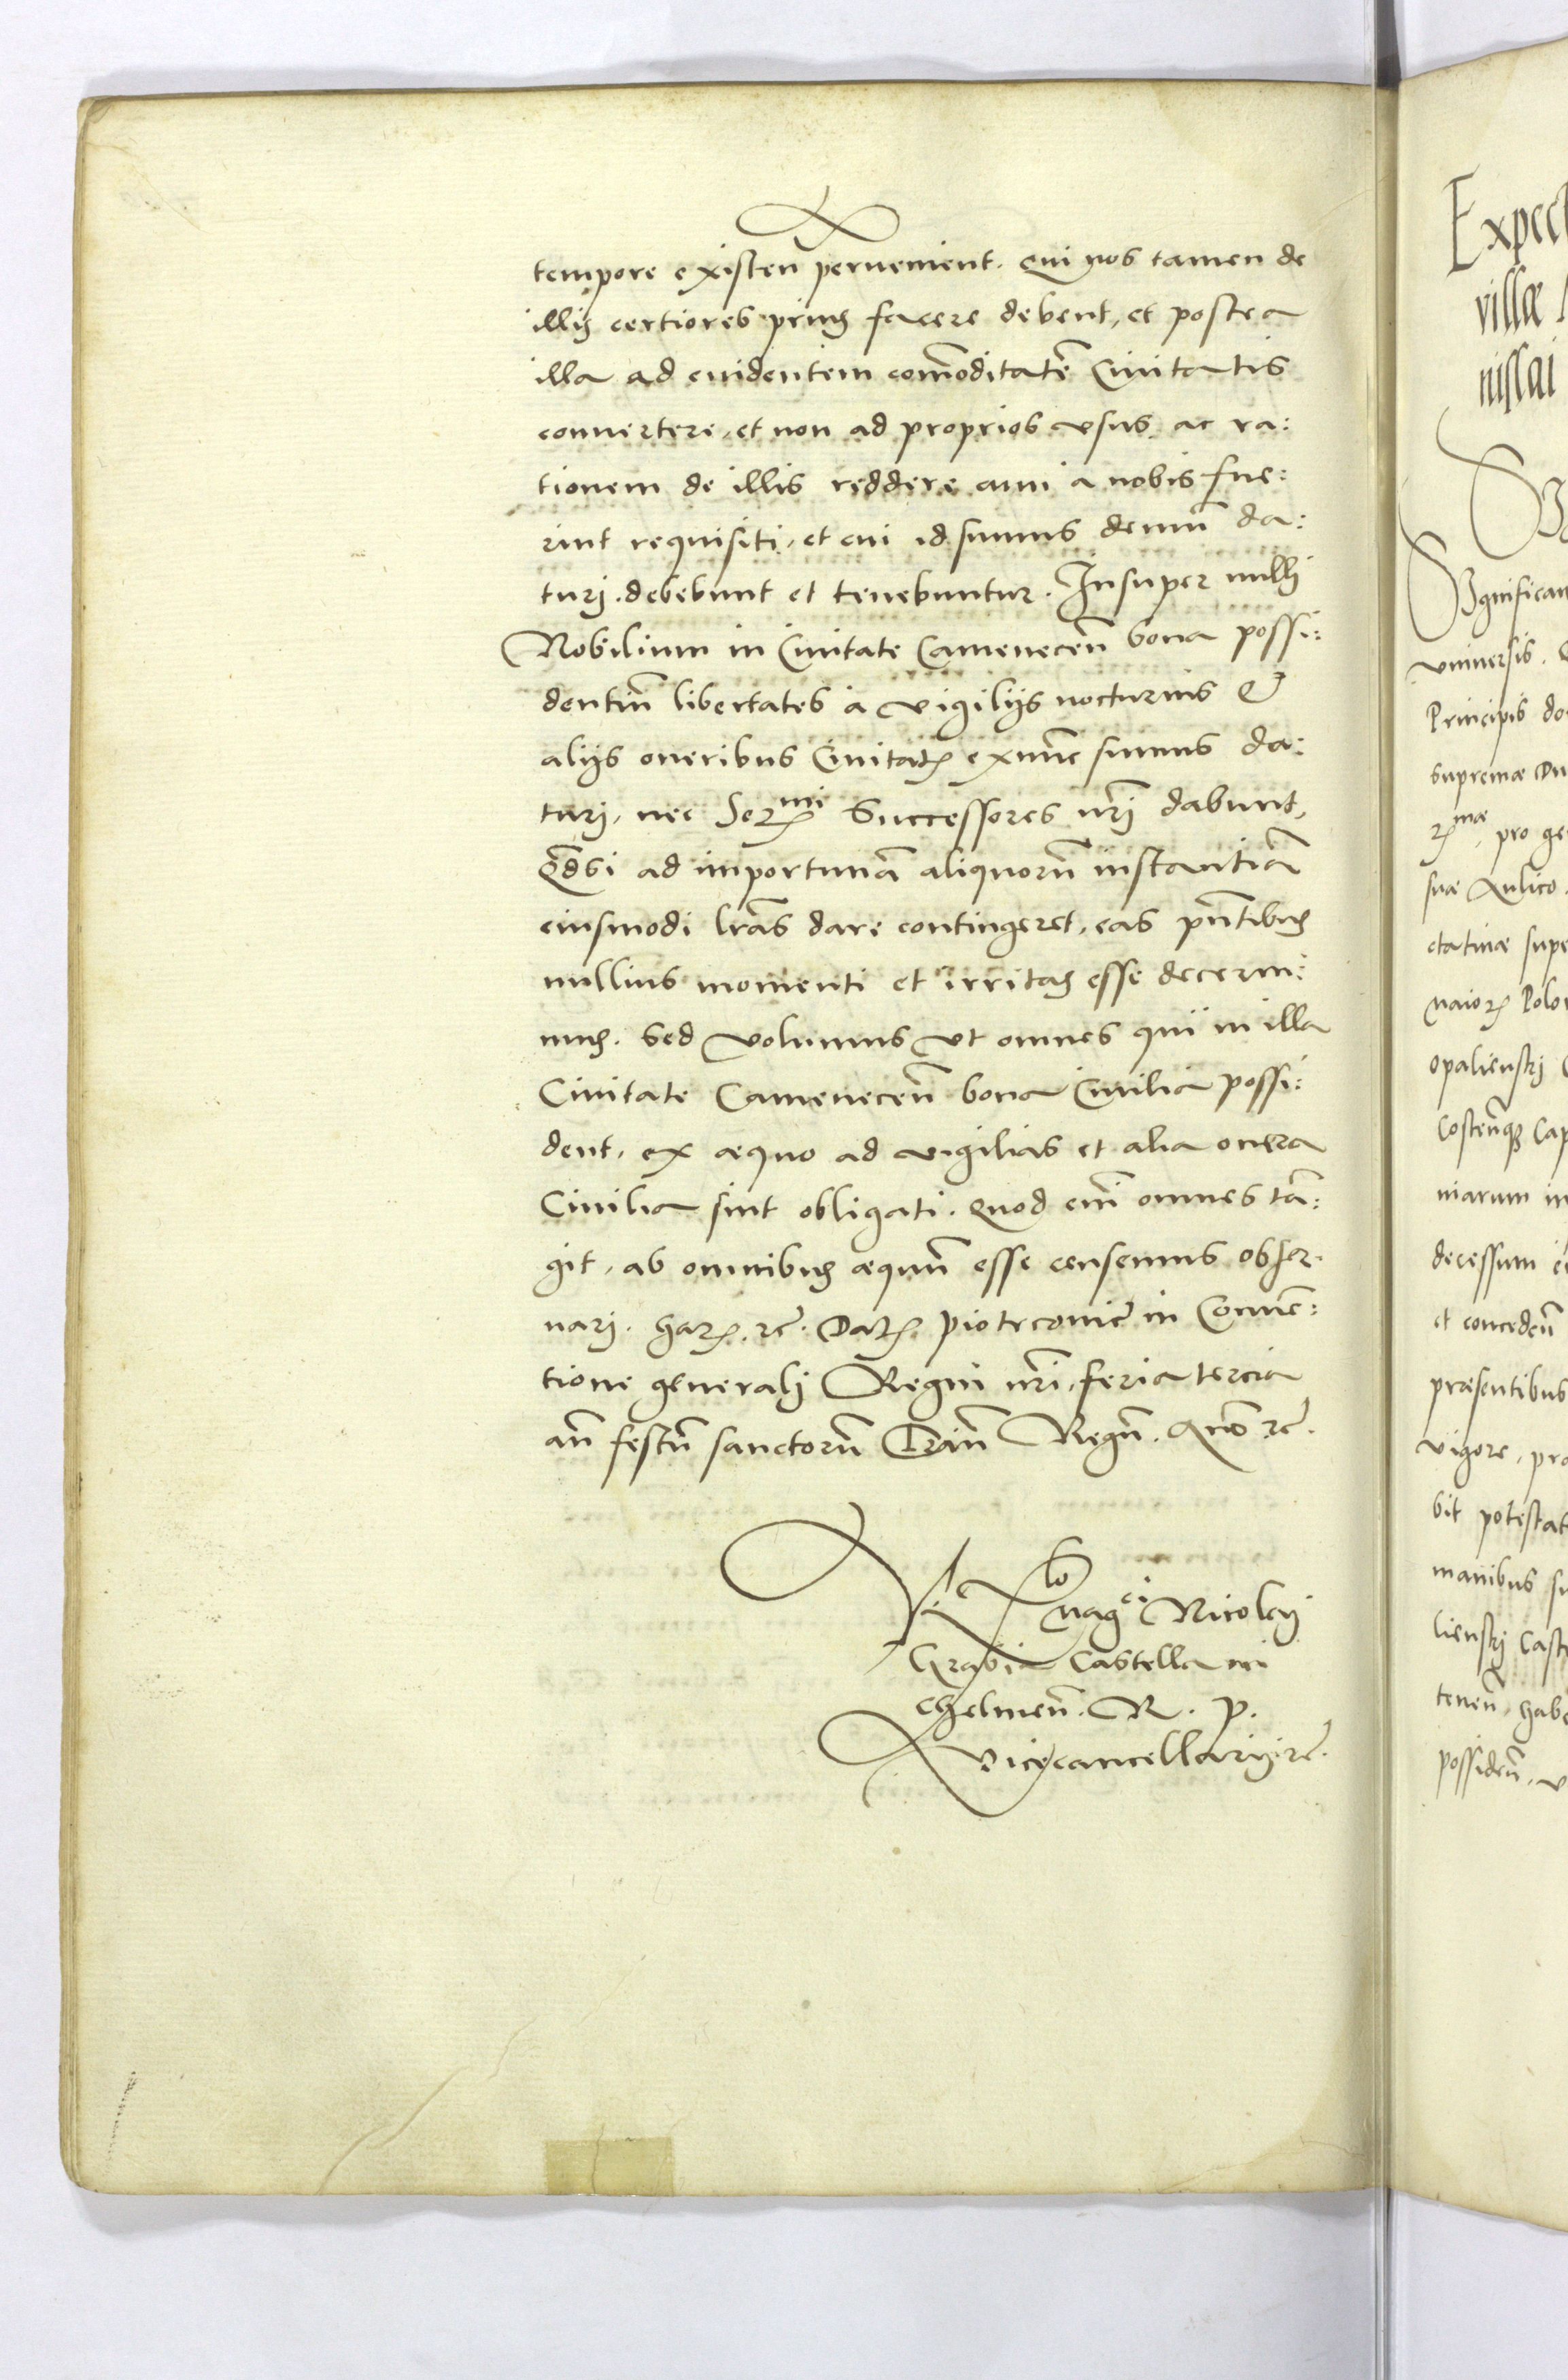 tempore existeñ pervenient. Qui nos tamen de
illis certiores prius facere debent, et postea
illa ad evidentem com̃oditatẽ Civitatis
convertere, et non ad proprios usus, ac ra:
tionem de illis reddere cum a nobis fue:
rint requisiti, et cui id sumus demũ da:
turi. debebunt et tenebuntur. Insuper nulli
Nobilium in Civitate Cameneceñ bona possi:
dentiũ libertates a vigilijs nocturnis &
alijs oneribus Civitatꝭ ex nũc sumus da:
turi, nec Serᵐⁱ Successores nr̃i dabunt,
Q̃dsi ad importunã aliquorũ instantiã
eiusmodi lr̃as dare contingeret, eas pñtibus
nullius momenti et irritas esse decerni:
mus. Sed volumus ut omnes qui in illa
Civitate Cameneceñ bona Civilia possi:
dent, ex aequo ad vigilias et alia onera
Civilia sint obligati. Quod eñi omnes tã:
git, ab omnibus aequũ esse censemus obser:
vari. Harꝭ. rc̃. Datꝭ. Piotrcoviae in Conuẽ:
tione generalj Regni nr̃i, feria tercia
añ festũ sanctorũ Triũ Regũ. Anno rc̃.
Relᵒ Magᶜⁱ Nicolaj
Grabia Castellani
Chelmeñ. R. P.
Vicecancellarij. rc̃.
Expect
villae
nissai
Significam
universis. Q
Principis do
supremae Du
rᵐᵃᵉ, pro ge
suae Aulico.
ctatinae supe
naiorꝭ Polo
Opalienskj C
Costeñqꝫ Cap
niarum in
decessum e
et concedeñ
praesentibus
vigore, pro
bit potestat
manibus su
lienskj Caste
teneñ, habe
possideñ, v